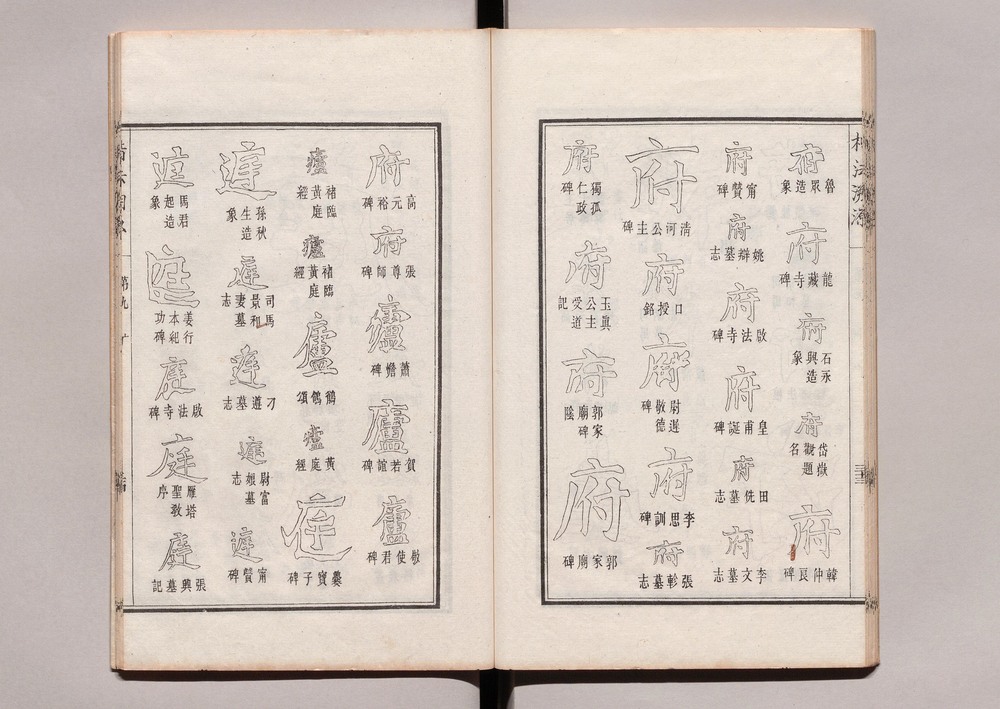 府 魯眾造象
府 龍藏寺碑
府 石永興造象
府 岱嶽觀題名
府 韓仲良碑
府 甯贊碑
府 姚辯墓志
府 啟法寺碑
府 皇甫誕碑
府 田侁墓志
府 李文墓志
府 清河公主碑
府 口授銘
府 尉遲敬德碑
府 李思訓碑
府 張軫墓志
府 獨孤仁政碑
府 玉真公主受道記
府 郭家廟碑陰
府 郭家廟碑
府 高元裕碑
府 張尊師碑
廬 蕭憺碑
廬 賀若誼碑
廬 敬使君碑
廬 褚臨黃庭經
廬 褚臨黃庭經
廬 鶺鴒頌
廬 黃庭經
庭 爨寶子碑
庭 孫秋生造象
庭 司馬景和妻墓志
庭 刁遵墓志
庭 尉富娘墓志
庭 甯贊碑
庭 馬君起造象
庭 姜行本紀功碑
庭 啟法寺碑
庭 雁塔聖教序
庭 張興墓記
第九 广